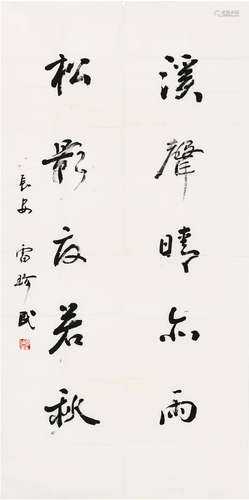 溪聲晴亦雨
松影夏若秋
長安 雷珍民